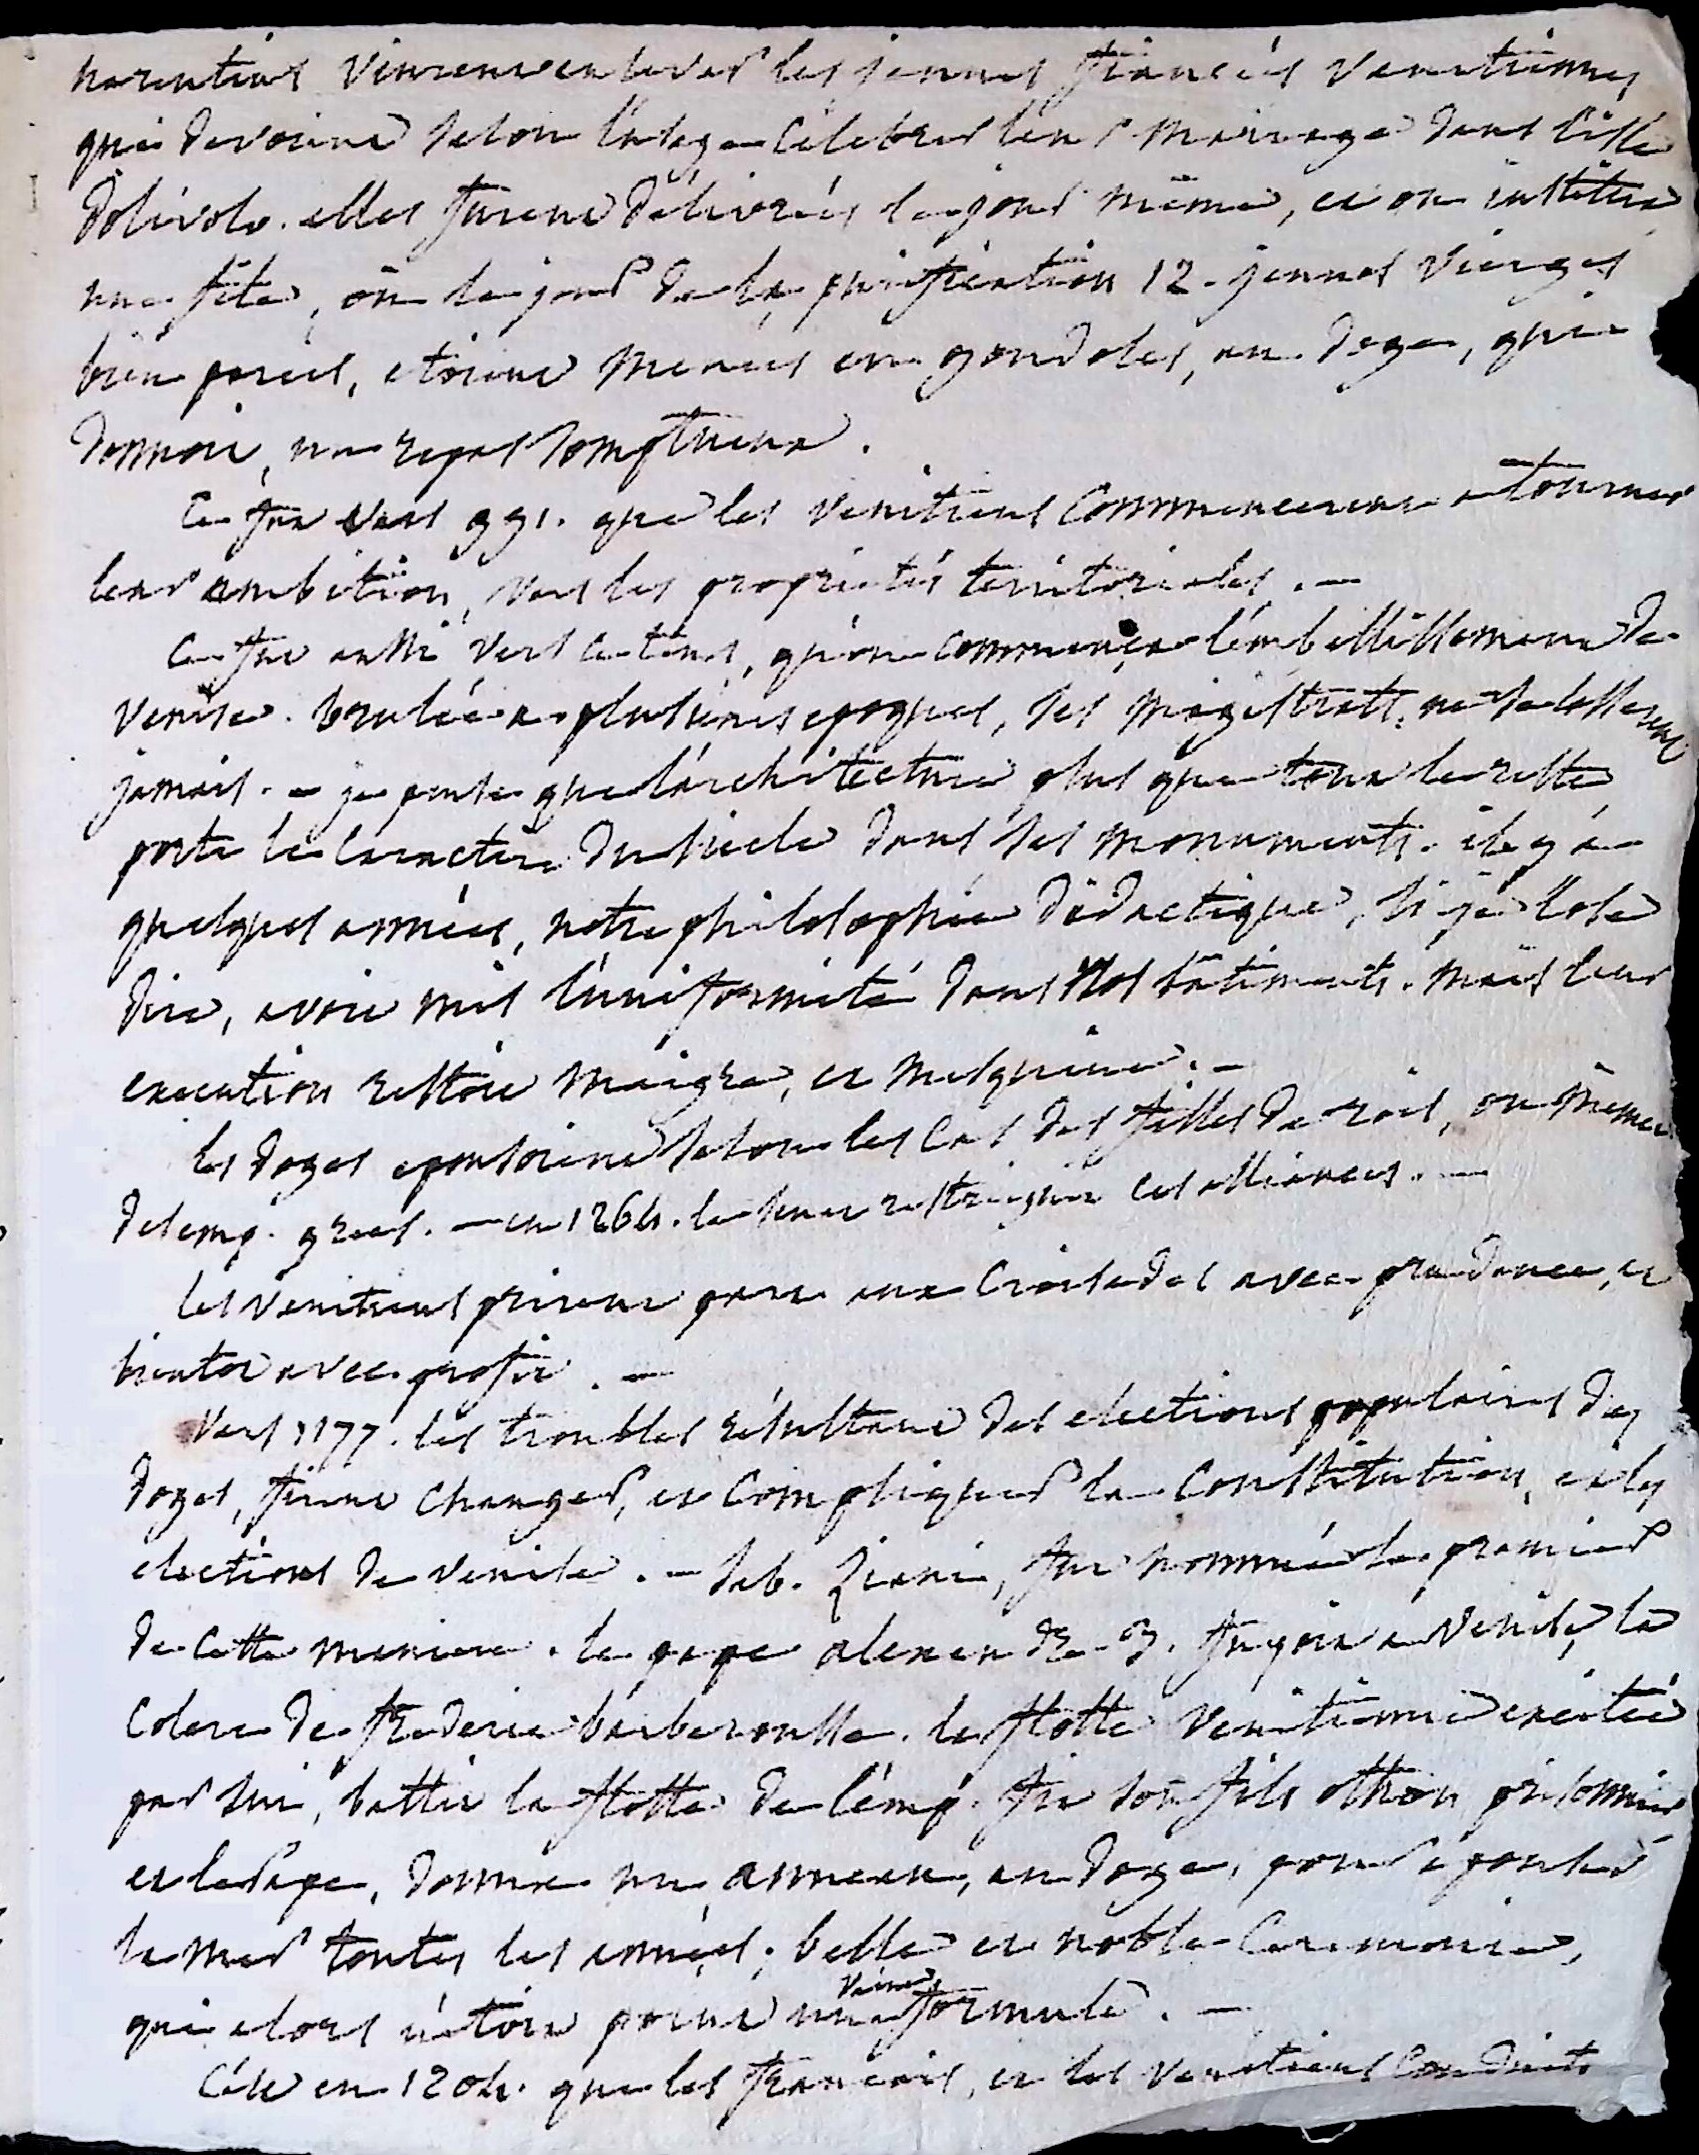 narentins vinrent enlever les jeunes fiancées venitiennes
qui devoient selon l'usage célébrer leur mariage dans l'isle
d'olivolo. elles furent délivrées le jour même, et on institua
une fête, où le jour de la purification 12. jeunes vierges
bien parées, etoient menées en gondoles, au doge, qui
donnoit, un repas somptueux.
Ce fut vers 991. que les venitiens commencerent a tourner
leur ambition, vers les proprietés territoriales. —
Ce fut aussi vers ce tems, qu'on commença l'embellissement de
Venise. brulée a plusieurs epoques, ses magistrats ne se lasserent
jamais. — je pense que l'architecture plus que tout le reste
porte le caractere du siecle dans ses monuments. il y a
quelques années, notre philosophie didactique, si je l'ose
dire, avoit mis l'uniformité dans nos bâtiments. mais leur
execution restoit maigre, et mesquine. —
les doges epousoient selon les cas des filles de rois, ou même
des emp. grecs. — en 1264. le senat restreignit ces alliances. —
les venitiens prirent part aux Croisades avec prudence, et
bientot avec profit. —
Vers 1177. les troubles résultant des elections populaires des
doges, firent changer, et compliquer la constitution, et les
elections de venise. — Seb. Ziani, fut nommé le premier
de cette maniere. le pape alexandre 3. fuyoit a Venise, la
colere de frederic barberousse. la flotte venitienne excitée
par lui, battit la flotte de l'emp. fit son fils othon prisonnier
et le Pape, donna un anneau, au doge, pour epouser
la mer toutes les années; belle et noble ceremonie,
qui alors n'etoit point une vaine formule. —
C'est en 1204. que les français, et les venitiens conduits